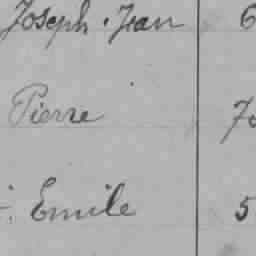 Joseph. Jean 6
Pierre 7
Emile 5